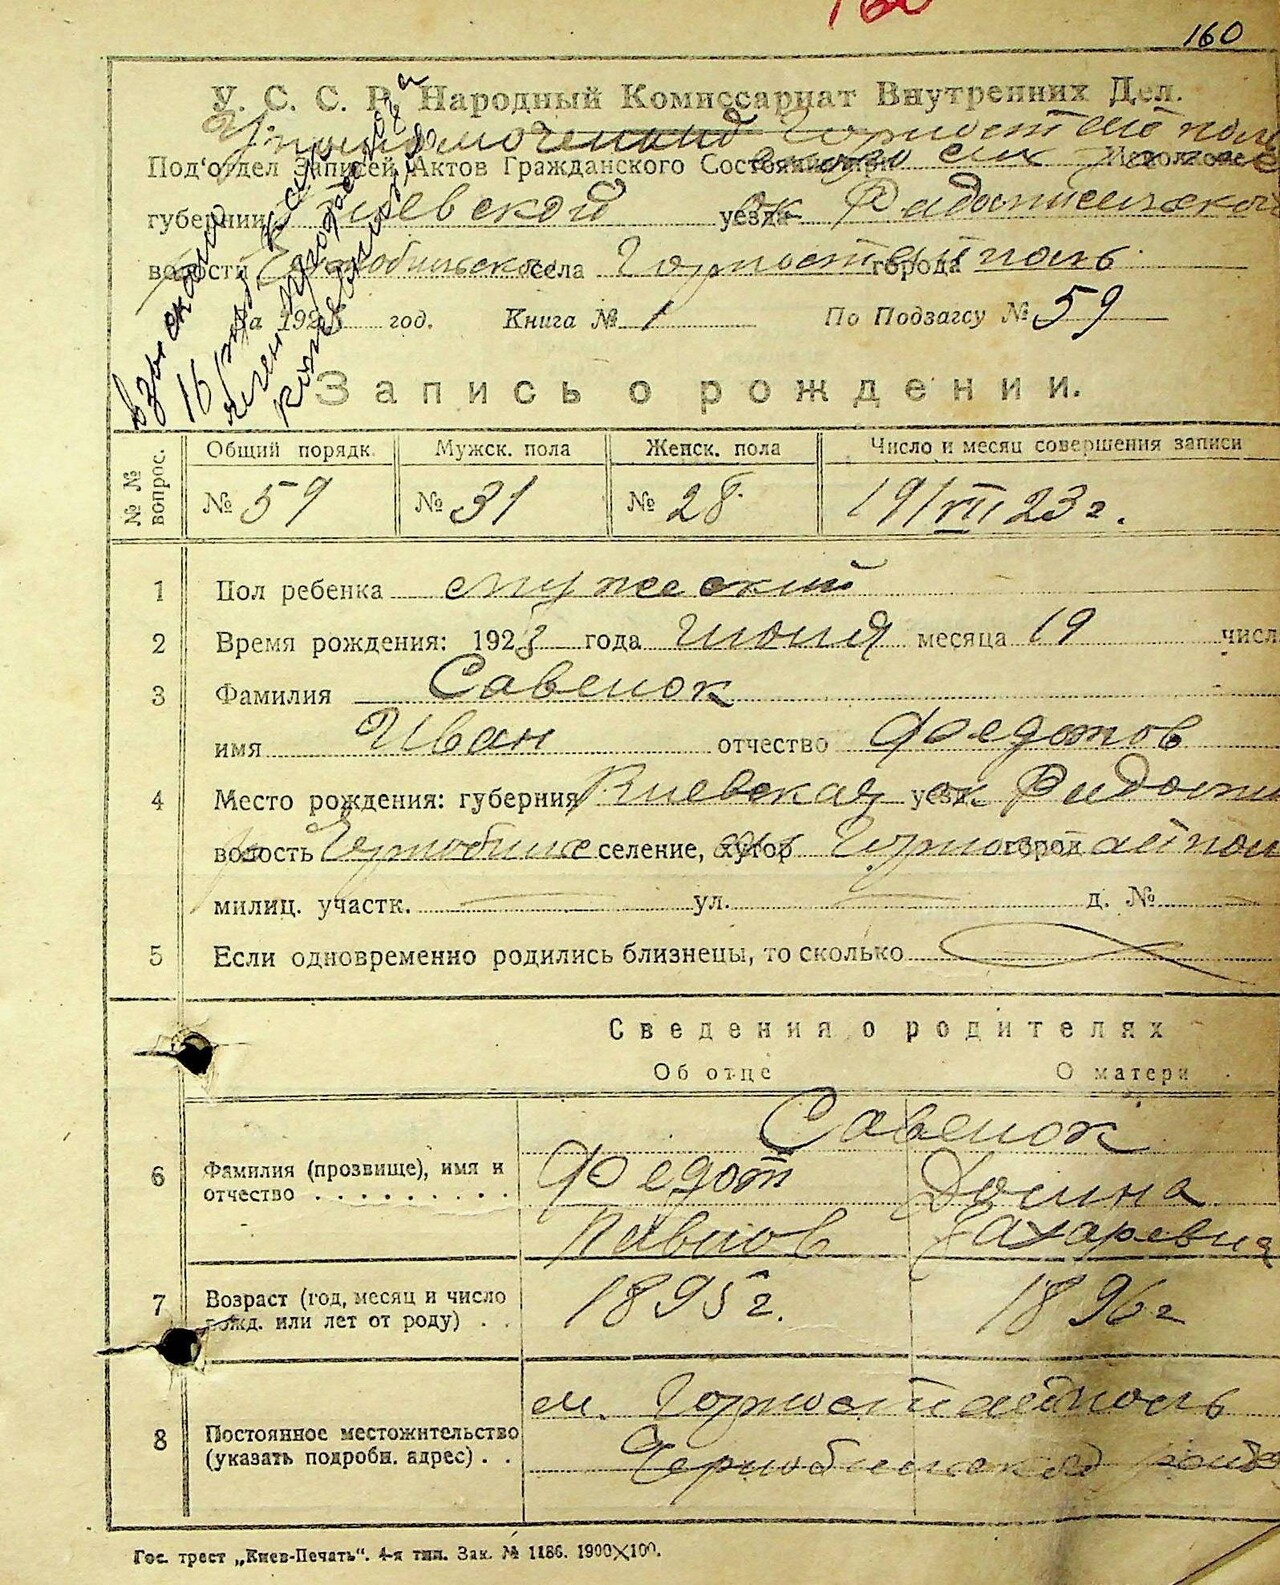 160
160
У. С. С. Р. Народный Комиссариат Внутренних Дел.
Под'отдел Записей Актов Гражданского Состояния при
губернии Киевской уезда ок Радомысельского
волости села Горностайполь города
за 1923 год. Книга № 1 По Подзагсу № 59
Запись о рождении.
№ № вопрос. Общий порядк. Мужск. пола Женск. пола Число и месяц совершения записи
№ 59 № 31 № 28 19/VII 23 г.
1 Пол ребенка мужеский
2 Время рождения: 1923 года июня месяца 19 числ
3 Фамилия Савенок
имя Иван отчество Федотов
4 Место рождения: губерния Киевская уезд ок Радомы
волость селение, хутор Горностайпол город
милиц. участк. — ул. — д. № —
5 Если одновременно родились близнецы, то сколько
Сведения о родителях
Об отце О матери
Савенок
6 Фамилия (прозвище), имя и Федот Домна
отчество . . . . . . . . . Павлов Захаревна
7 Возраст (год, месяц и число 1895 г. 1896 г
рожд. или лет от роду) . .
м. Горностайполь
8 Постоянное местожительство Чернобыльской
(указать подробн. адрес) . .
Гос. трест „Киев-Печать“. 4-я тип. Зак. № 1186. 1900×100.